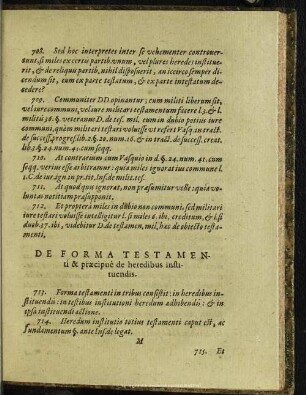 708. Sed hoc interpretes inter se vehementer controver-
tunt, si miles ex certa partib. unum, vel plures heredes instituerit,
& de reliquis partib. nihil disposuerit, an iccirco semper di-
cendum sit, eum ex parte testatum, & ex parte intestatum de-
cedere?
709. Communiter DD. opinantur: cum militi liberum sit,
vel iure communi, vel iure militari testamentum facere l.3. & l.
militis 36. §. veteranus D. de tes. mil. eum in dubio potius iure
communi, quàm militari testari voluisse ut refert Vasq. in tract.
de success. progress. lib. 2. §. 20. num. 16. & in tract. de success. creat.
lib. 2. §. 24. num. 41. cum seqq.
710. At contrarium cum Vasquio in d. §. 24. num. 41. cum
seqq. verius esse arbitramur: quia miles ignorat ius commune l.
1. C. de iur. ign. in pr. tit. Ins. de milit. tes.
711. At quod quis ignorat, non præsumitur velle: quia vo-
luntas notitiam præsupponit.
712. Et propterea miles in dubio non communi, sed militari
iure testari voluisse intelligitur l. si miles 6. ibi, creditum, & l. si
duob. 37. ibi, videbitur D. de testamen. mil. hac de obiecto testa-
menti.
DE FORMA TESTAMEN-
ti & præcipuè de heredibus insti-
tuendis.
713. Forma testamenti in tribus consistit: in heredibus in-
stituendis: in testibus institutioni heredum adhibendis: & in
ipsa instituendi actione.
714. Heredum institutio totius testamenti caput est, ac
fundamentum §. ante Ins. de legat.
M
715. Et